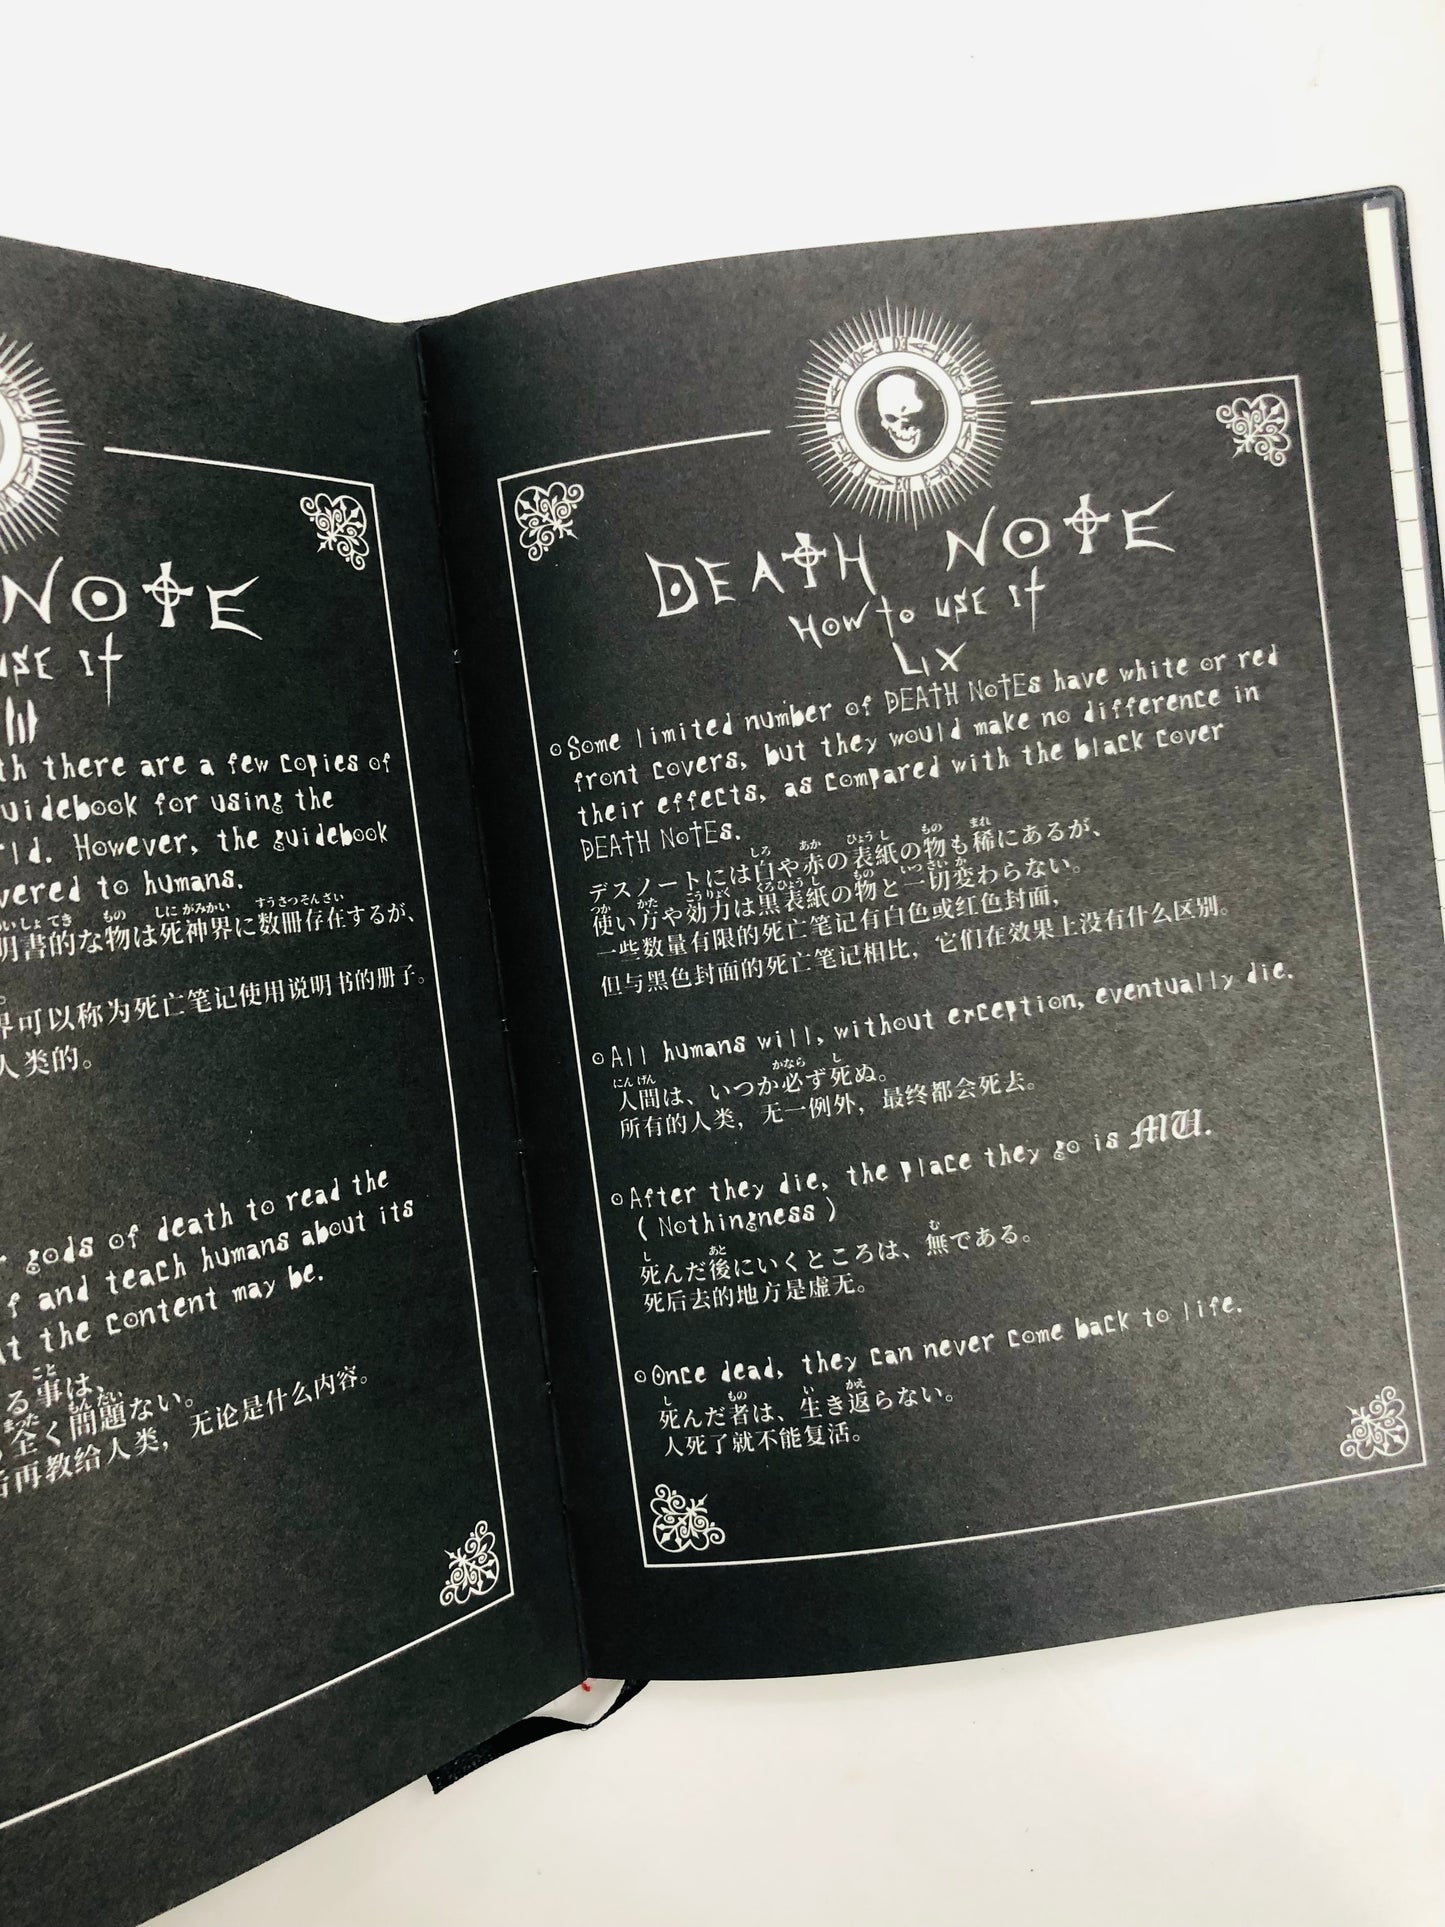 NOTE
USE It
th there are a few copies of
uidebook for using the
rld. However, the guidebook
vered to humans.
すうさつそんざい
しにがみかい
もの
いしょてき
明書的な物は死神界に数冊存在するが、
。
界可以称为死亡笔记使用说明书的册子。
人类的。
r gods of death to read the
f and teach humans about its
at the content may be.
こと
る事は、
まったもんだい
全く問題ない。
后再教给人类，无论是什么内容。
DEATH NOTE
How to USE It
LIX
Some limited number of DEATH NOTEs have white or red
front covers, but they would make no difference in
their effects, as compared with the black cover
DEATH NOTEs.
しろ あか ひょうし もの まれ
デスノートには白や赤の表紙の物も稀にあるが、
つか かた こうりょく くろひょうし もの いっさい か
使い方や効力は黒表紙の物と一切変わらない。
一些数量有限的死亡笔记有白色或红色封面，
但与黑色封面的死亡笔记相比，它们在效果上没有什么区别。
All humans will, without exception, eventually die.
にんげん かなら し
人間は、いつか必ず死ぬ。
所有的人类，无一例外，最终都会死去。
After they die, the place they go is MU.
(Nothingness)
し あと む
死んだ後にいくところは、無である。
死后去的地方是虚无。
Once dead, they can never come back to life.
し もの い かえ
死んだ者は、生き返らない。
人死了就不能复活。